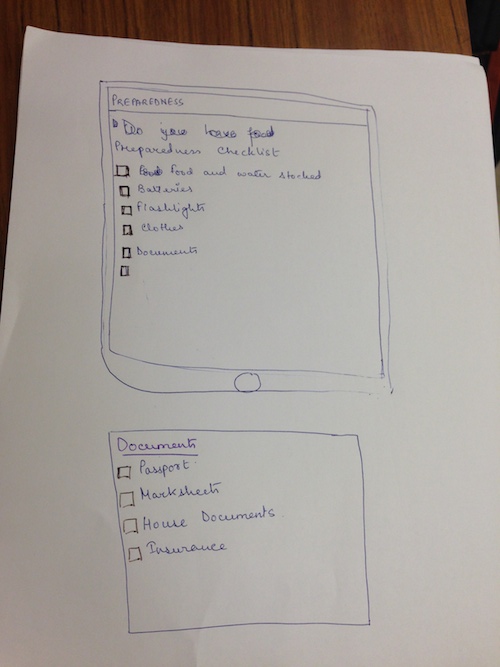 PREPAREDNESS
Do you have food
Preparedness Checklist
Food and water stocked
Batteries
Flashlights
Clothes
Documents
Documents
Passport
Marksheets
House Documents
Insurance